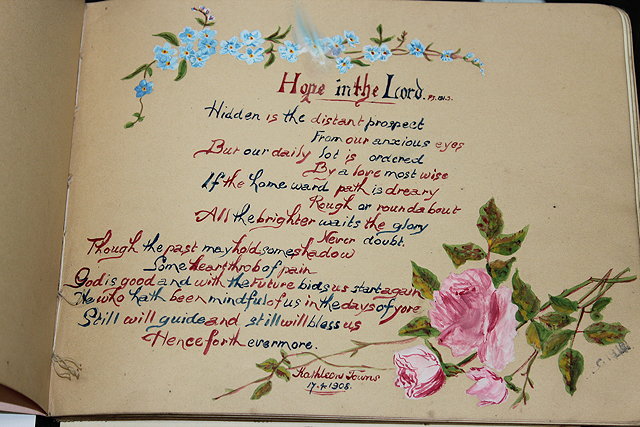 Hope in the Lord.
Hidden is the distant prospect
From our anxious eyes
But our daily lot is ordered
By a love most wise
If the homeward path is dreary
Rough or roundabout
All the brighter waits the glory
Never doubt.
Though the past may hold some shadow
Some heart throb of pain
God is good and with the Future bids us start again
He who hath been mindful of us in the days of yore
Still will guide and still will bless us
Henceforth evermore.
Kathleen Towns
17.4.1908.